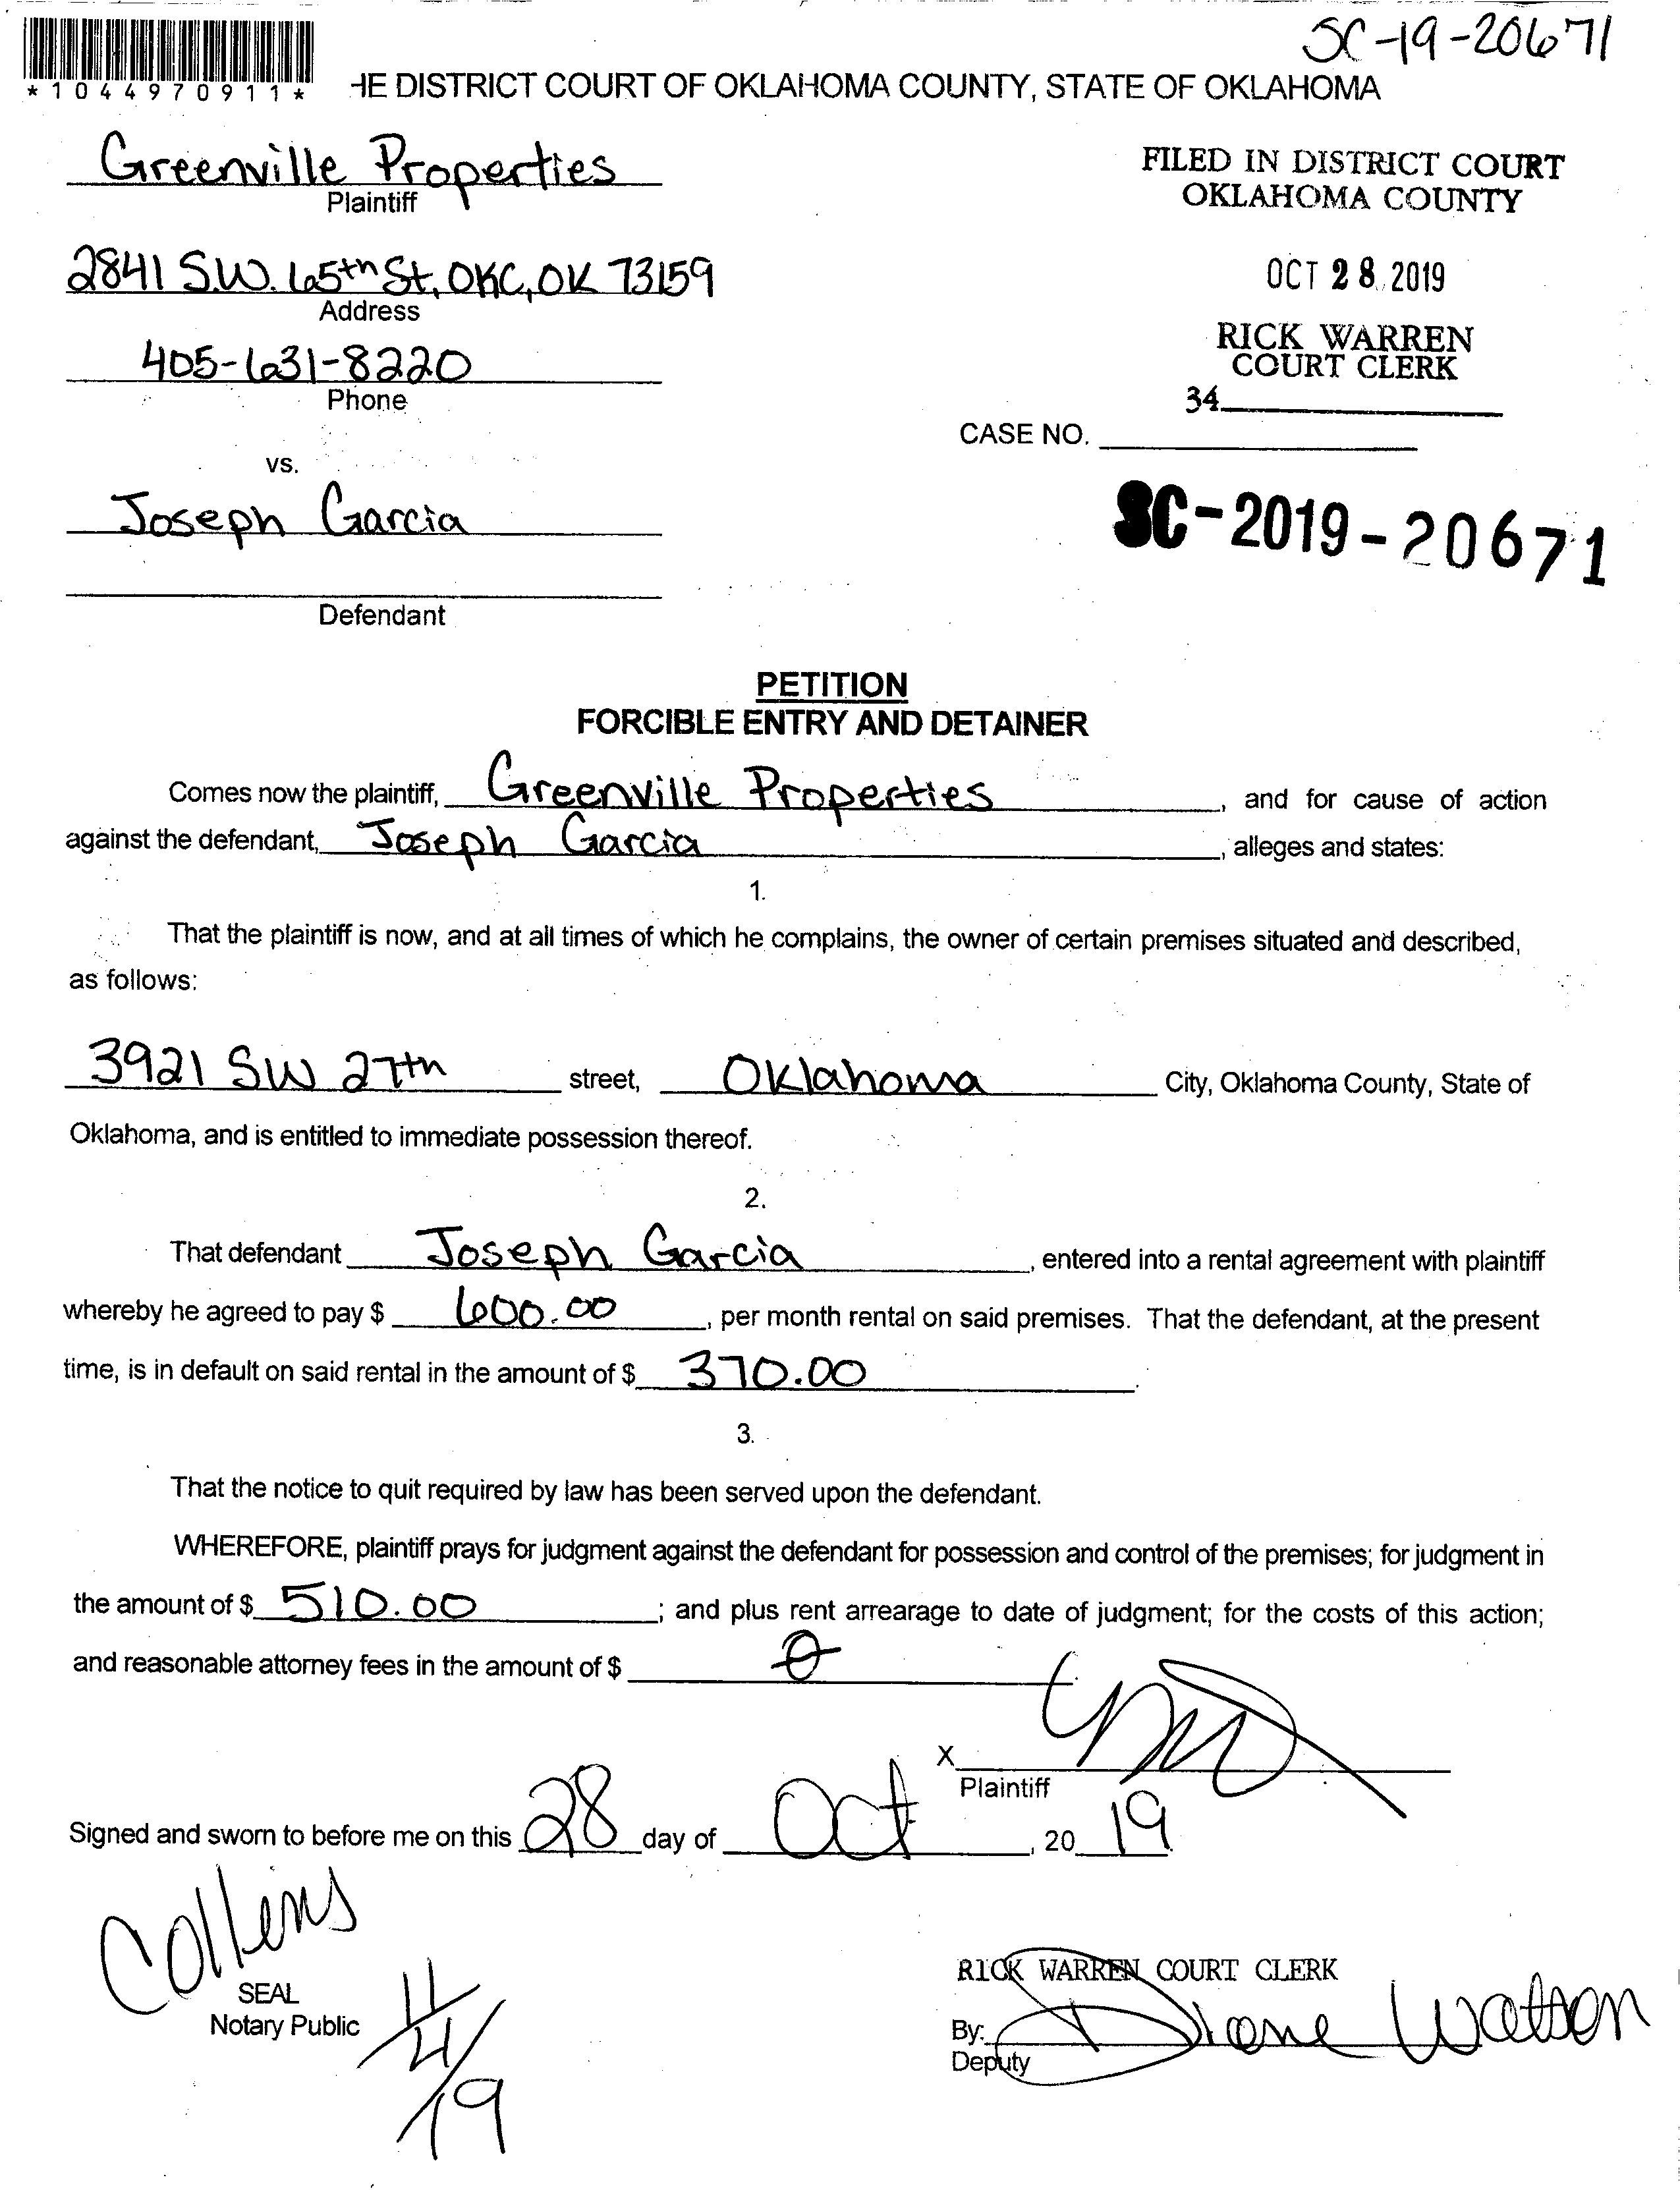 SC-19-20671
*1044970911*
HE DISTRICT COURT OF OKLAHOMA COUNTY, STATE OF OKLAHOMA
Greenville Properties
Plaintiff
FILED IN DISTRICT COURT
OKLAHOMA COUNTY
2841 S.W. 65th St, OKC, OK 73159
Address
OCT 28 2019
405-631-8220
Phone
RICK WARREN
COURT CLERK
34
CASE NO.
vs.
Joseph Garcia
SC-2019-20671
Defendant
PETITION
FORCIBLE ENTRY AND DETAINER
Comes now the plaintiff, Greenville Properties, and for cause of action
against the defendant, Joseph Garcia, alleges and states:
1.
That the plaintiff is now, and at all times of which he complains, the owner of certain premises situated and described,
as follows:
3921 SW 27th street, Oklahoma City, Oklahoma County, State of
Oklahoma, and is entitled to immediate possession thereof.
2.
That defendant Joseph Garcia, entered into a rental agreement with plaintiff
whereby he agreed to pay $ 600.00, per month rental on said premises. That the defendant, at the present
time, is in default on said rental in the amount of $ 370.00.
3.
That the notice to quit required by law has been served upon the defendant.
WHEREFORE, plaintiff prays for judgment against the defendant for possession and control of the premises; for judgment in
the amount of $ 510.00; and plus rent arrearage to date of judgment; for the costs of this action;
and reasonable attorney fees in the amount of $ 0
X
Plaintiff
Signed and sworn to before me on this 28 day of Oct, 20 19
Collins
SEAL
Notary Public
11/4/19
RICK WARREN COURT CLERK
By: Diane Watson
Deputy